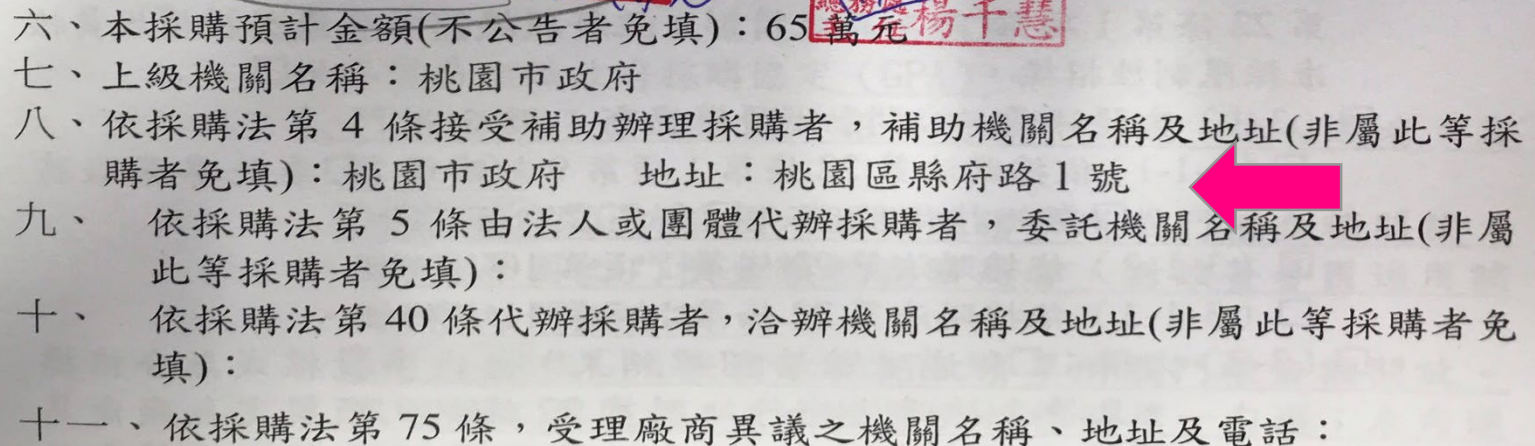 六、本採購預計金額(不公告者免填)：65 萬元
楊千慧
七、上級機關名稱：桃園市政府
八、依採購法第 4 條接受補助辦理採購者，補助機關名稱及地址(非屬此等採
購者免填)：桃園市政府 地址：桃園區縣府路 1 號
九、 依採購法第 5 條由法人或團體代辦採購者，委託機關名稱及地址(非屬
此等採購者免填)：
十、 依採購法第 40 條代辦採購者，洽辦機關名稱及地址(非屬此等採購者免
填)：
十一、依採購法第 75 條，受理廠商異議之機關名稱、地址及電話：